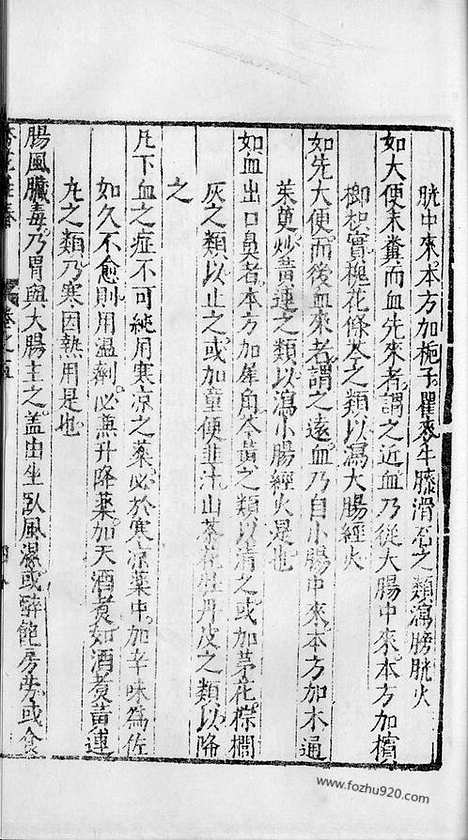 胱中來本方加梔子瞿麥牛膝滑石之類瀉膀胱火
如大便未糞而血先來者謂之近血乃從大腸中來本方加檳
榔枳實槐花條芩之類以瀉大腸經火
如先大便而後血來者謂之遠血乃自小腸中來本方加木通
茱萸炒黃連之類以瀉小腸經火是也
如血出口鼻者本方加犀角芩黃之類以清之或加茅花棕櫚
灰之類以止之或加童便韭汁山茶花牡丹皮之類以降
之
凡下血之症不可純用寒涼之藥必於寒涼藥中加辛味為佐
如久不愈則用溫劑必兼升降藥加天酒煮如酒煮黃連
丸之類乃寒因熱用是也
腸風臟毒乃胃與大腸主之盖由坐臥風濕或醉飽房勞或食
卷之五
www.fozhu920.com